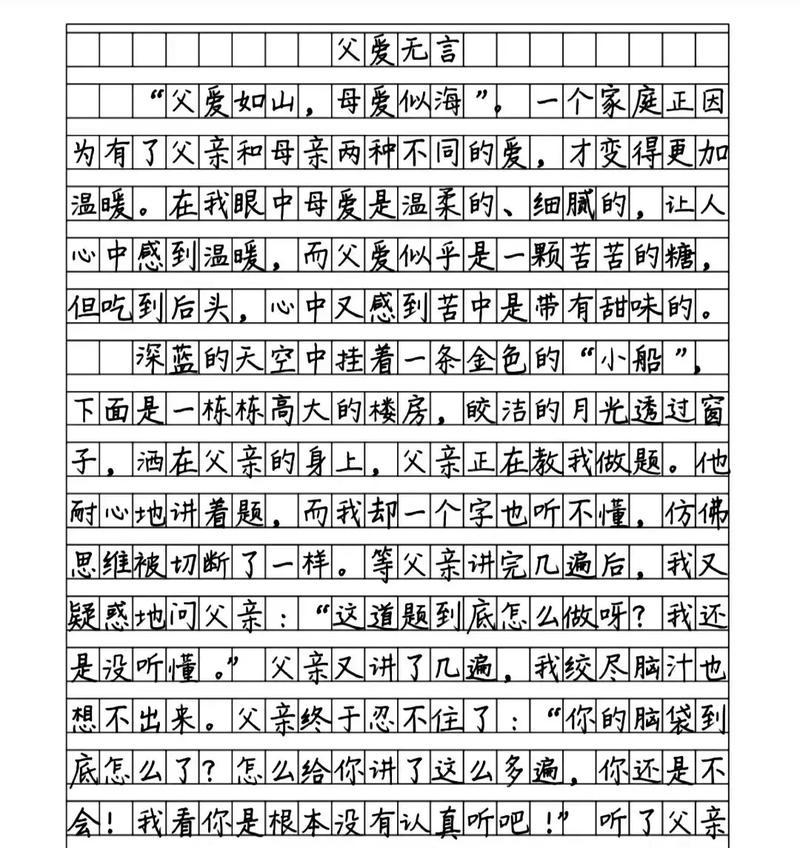 父爱无言
“父爱如山，母爱似海”。一个家庭正因
为有了父亲和母亲两种不同的爱，才变得更加
温暖。在我眼中母爱是温柔的、细腻的，让人
心中感到温暖，而父爱似乎是一颗苦苦的糖，
但吃到后头，心中又感到苦中是带有甜味的。
深蓝的天空中挂着一条金色的“小船”，
下面是一栋栋高大的楼房，皎洁的月光透过窗
子，洒在父亲的身上，父亲正在教我做题。他
耐心地讲着题，而我却一个字也听不懂，仿佛
思维被切断了一样。等父亲讲完几遍后，我又
疑惑地问父亲：“这道题到底怎么做呀？我还
是没听懂。”父亲又讲了几遍，我绞尽脑汁也
想不出来。父亲终于忍不住了：“你的脑袋到
底怎么了？怎么给你讲了这么多遍，你还是不
会！我看你是根本没有认真听吧！”听了父亲